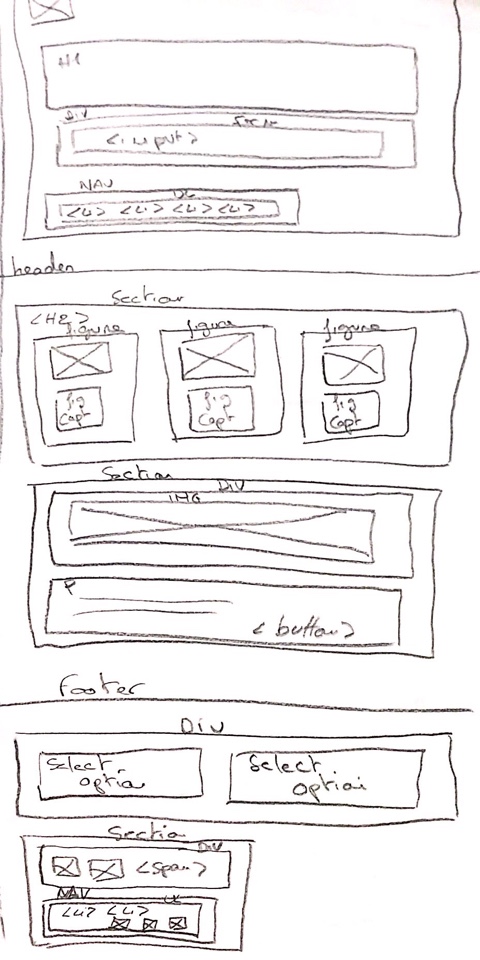 H1
Div
Form
<input>
NAV
UL
<Li> <Li> <Li> <Li>
header
Section
<H2>
figure
figure
figure
fig
Capt
fig
Capt
fig
Capt
Section
Div
IMG
P
<button>
footer
Div
Select
option
Select
option
Section
Div
<span>
NAV
UL
<Li> <Li>